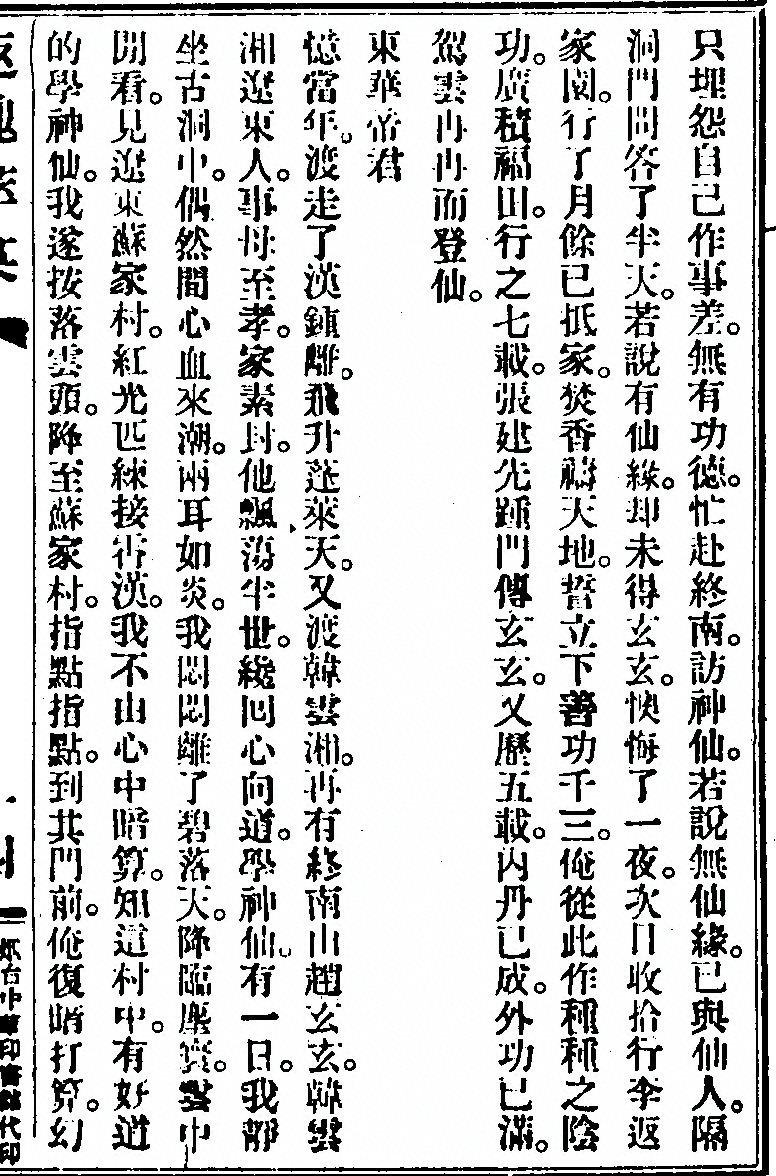 只埋怨自己作事差。無有功德。忙赴終南。訪神仙。若說無仙緣。已與仙人。隔
洞門問答了半天。若說有仙緣。却未得玄玄。懊悔了一夜。次日收拾行李返
家園。行了月餘已抵家。焚香禱天地。誓立下善功千三。俺從此作種種之陰
功。廣積福田。行之七載。張建先踵門傳玄玄。又歷五載。內丹已成。外功已滿。
駕雲冉冉而登仙。
東華帝君
憶當年。渡走了漢鍾離。飛升蓬萊天。又渡韓雲湘。再有終南山趙玄玄。韓雲
湘遼東人。事母至孝。家素封。他飄蕩半世。纔回心向道。學神仙。有一日。我靜
坐古洞中。偶然間心血來潮。兩耳如炎。我悶悶離了碧落天。降臨塵寰。雲中
閒看。見遼東蘇家村。紅光匹練接霄漢。我不由心中暗算。知這村中。有好道
的學神仙。我遂按落雲頭。降至蘇家村。指點指點。到其門前。俺復暗打算。幻
中華印書館代印